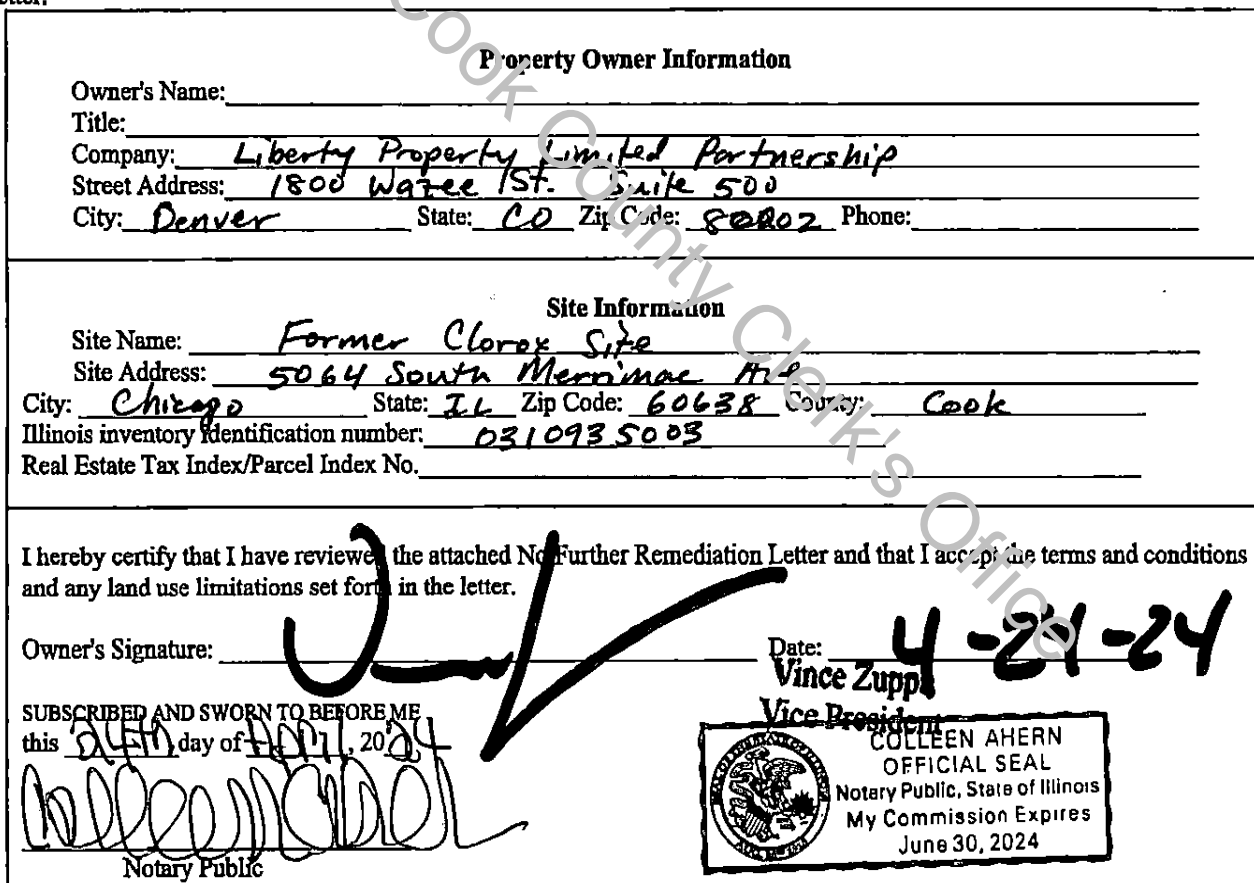 Property Owner Information
Owner's Name:
Title:
Company: Liberty Property Limited Partnership
Street Address: 1800 Wazee St. Suite 500
City: Denver State: CO Zip Code: 80202 Phone:
Site Information
Site Name: Former Clorox Site
Site Address: 5064 South Merrimac Ave
City: Chicago State: IL Zip Code: 60638 County: Cook
Illinois inventory identification number: 0310935003
Real Estate Tax Index/Parcel Index No.
I hereby certify that I have reviewed the attached No Further Remediation Letter and that I accept the terms and conditions
and any land use limitations set forth in the letter.
Owner's Signature: Date: 4-24-24
Vince Zuppa
Vice President
SUBSCRIBED AND SWORN TO BEFORE ME
this 24th day of April, 2024
Notary Public
COLLEEN AHERN
OFFICIAL SEAL
Notary Public, State of Illinois
My Commission Expires
June 30, 2024
Cook County Clerk's Office